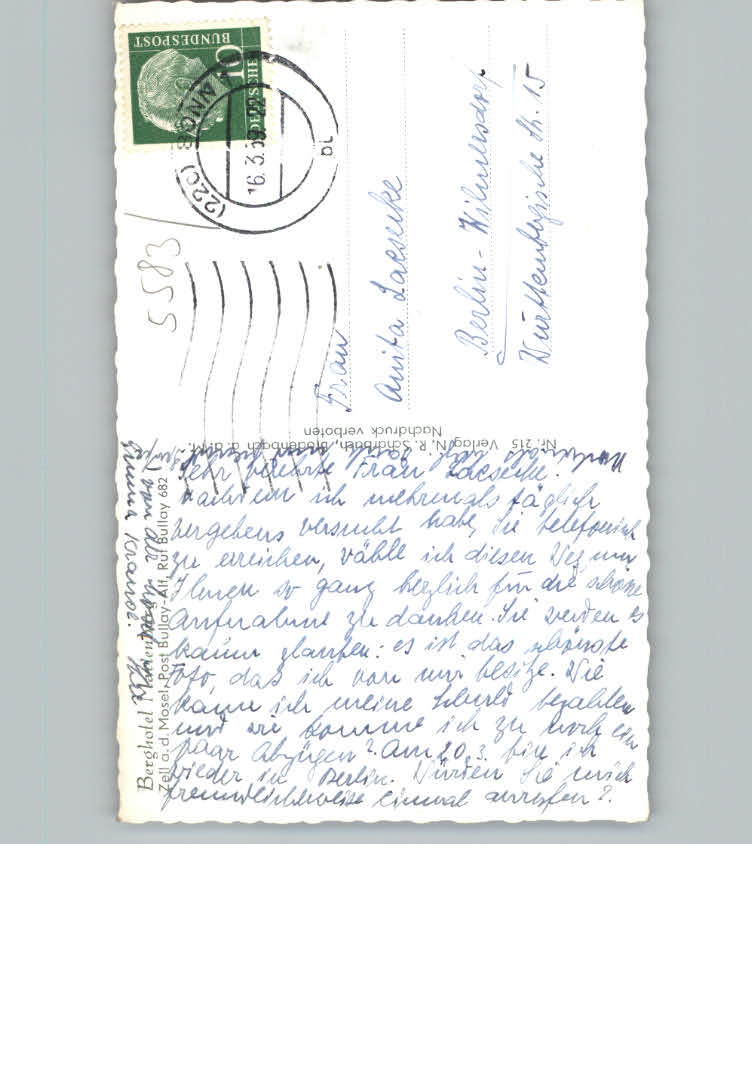 Sehr verehrte Frau Laesecke.
Nachdem ich mehrmals täglich
vergebens versucht habe, Sie telefonisch
zu erreichen, wähle ich diesen Weg um
Ihnen so ganz herzlich für die schöne
Aufnahme zu danken. Sie werden es
kaum glauben: es ist das schönste
Foto, das ich von mir besitze. Wie
kann ich meine Schuld bezahlen
und wie komme ich zu noch ein
paar Abzügen? Am 20.3. bin ich
wieder in Berlin. Würden Sie mich
freundlicherweise einmal anrufen?
von der Mosel Ihre
Krause.
Berghotel
Zell a. d. Mosel, Post Bullay-Alf, Ruf Bullay 682
Nr. 215 Verlag N. R. Scharbach, Brodenbach a. d. M.
Nachdruck verboten
DEUTSCHE
BUNDESPOST
10
(22c)
16.3.59
bi
5583
Frau
Anita Laesecke
Berlin-Wilmersdorf
Württembergische Str. 15